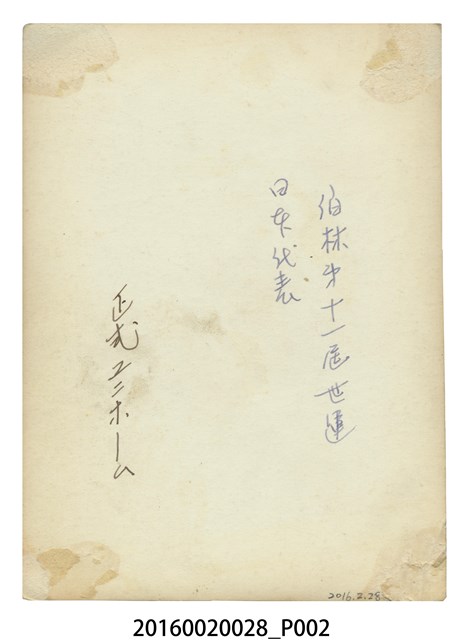 伯林第十一屆世運
日本代表
正式ユニホーム
2016.2.28
20160020028_P002